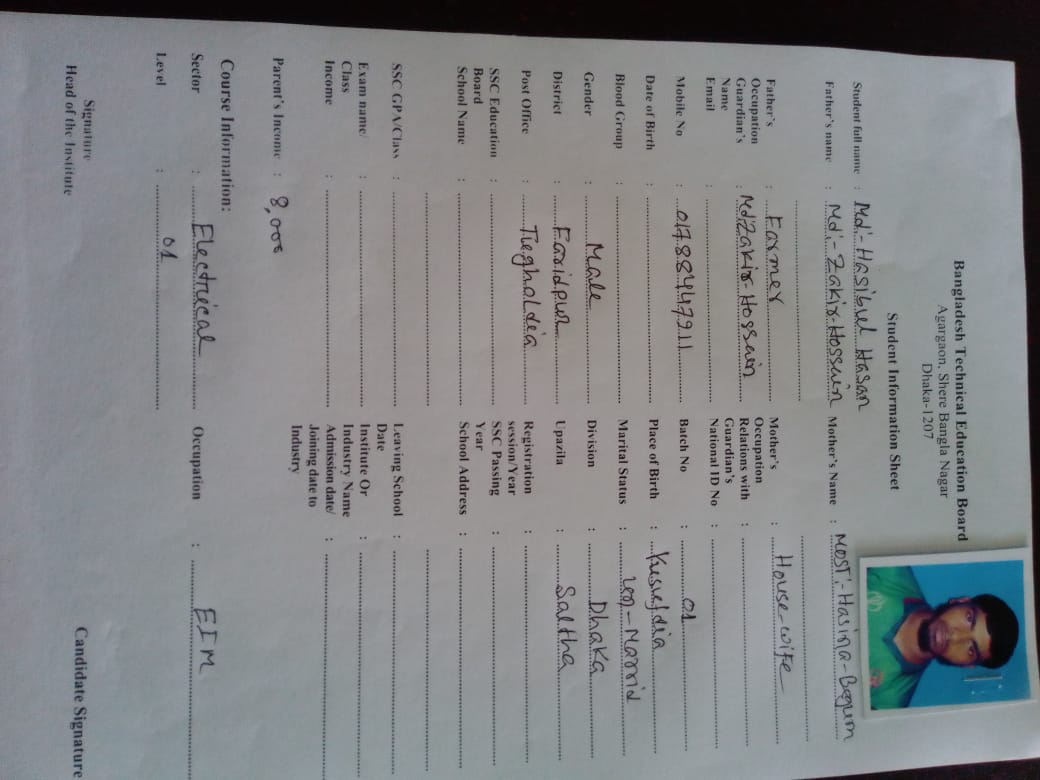 Bangladesh Technical Education Board
Agargaon, Shere Bangla Nagar
Dhaka-1207
Student Information Sheet
Student full name : Md:- Hasibul Hasan
Father's name : Md:- Zakir Hossain Mother's Name : MOST:- Hasina-Begum
Father's Occupation : Farmer Mother's Occupation : House-wife
Guardian's Name : Md Zakir-Hossain Relations with Guardian's :
Email : National ID No :
Mobile No : 01788447911 Batch No : 01
Date of Birth : Place of Birth : Kusuldia
Blood Group : Marital Status : un-Marrid
Gender : Male Division : Dhaka
District : Faridpur Upazila : Saltha
Post Office : Registration session/Year :
SSC Education Board : SSC Passing Year :
School Name : School Address :
SSC GPA/Class : Leaving School Date :
Exam name/ Class : Institute Or Industry Name :
Income : Admission date/ Joining date to Industry :
Parent's Income : 8,000
Course Information:
Sector : Electrical Occupation : EIM
Level : 01
Signature
Head of the Institute
Candidate Signature